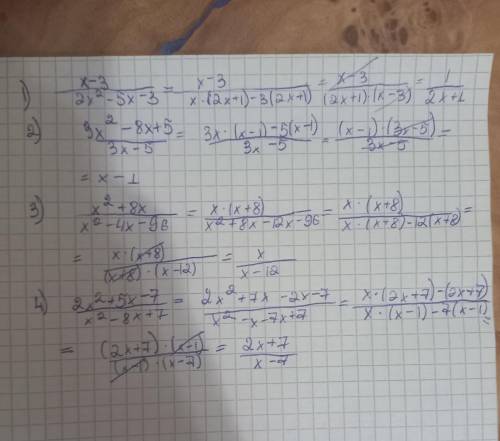 1) (x-3)/(2x²-5x-3) = (x-3)/(x·(2x+1)-3(2x+1)) = (x-3)/((2x+1)·(x-3)) = 1/(2x+1)
2) (3x²-8x+5)/(3x-5) = (3x·(x-1)-5(x-1))/(3x-5) = ((x-1)·(3x-5))/(3x-5) =
= x-1
3) (x²+8x)/(x²-4x-96) = (x·(x+8))/(x²+8x-12x-96) = (x·(x+8))/(x·(x+8)-12(x+8)) =
= (x·(x+8))/((x+8)·(x-12)) = x/(x-12)
4) (2x²+5x-7)/(x²-8x+7) = (2x²+7x-2x-7)/(x²-x-7x+7) = (x·(2x+7)-(2x+7))/(x·(x-1)-7(x-1)) =
= ((2x+7)·(x-1))/((x-1)·(x-7)) = (2x+7)/(x-7)